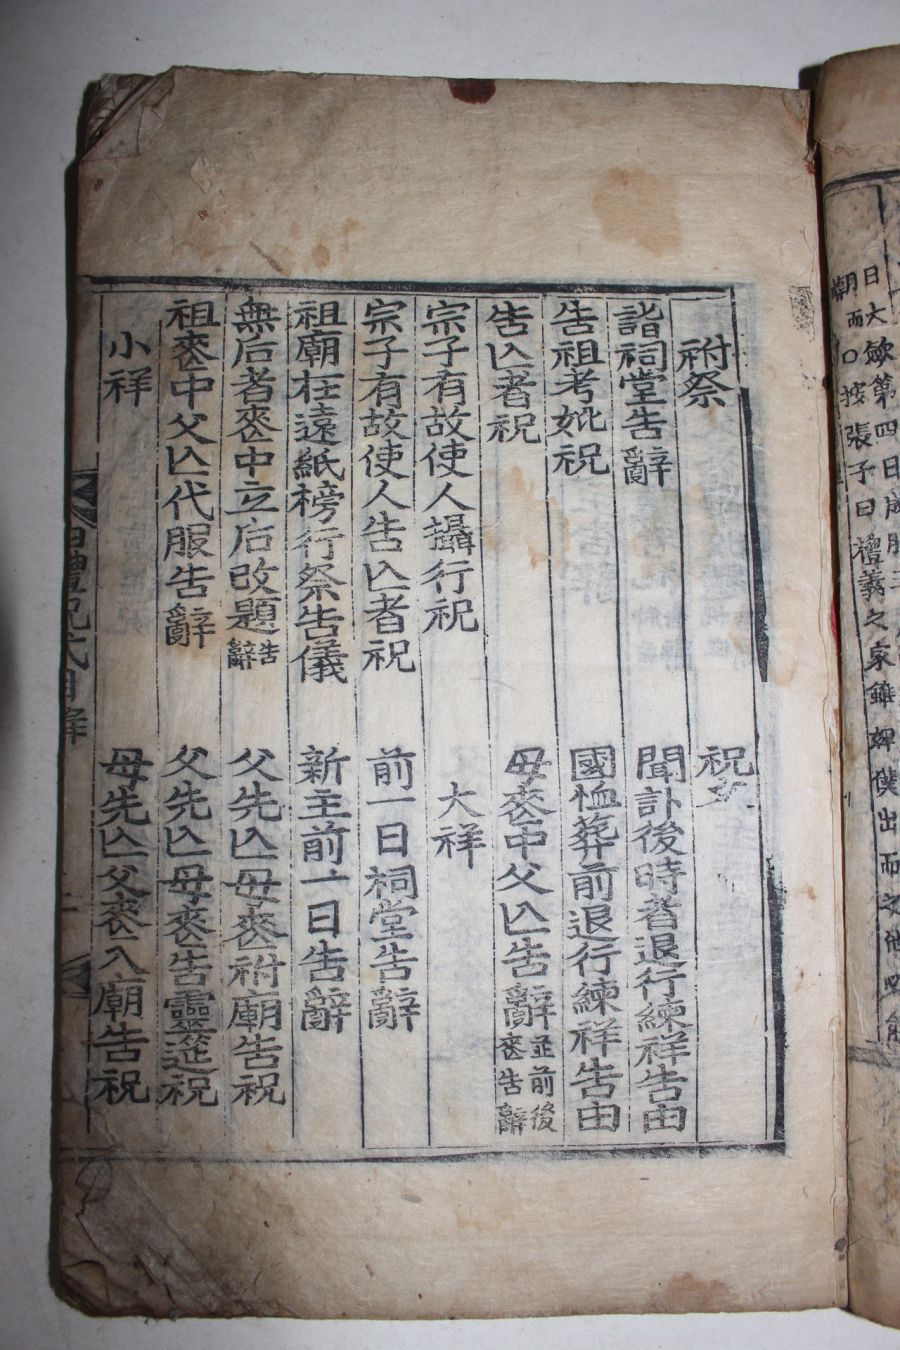 日大斂第四日成服
月而○按張子曰禮義之家雖婢僕出而之他
祔祭
詣祠堂告辭
告祖考妣祝
告亾者祝
宗子有故使人攝行祝
宗子有故使人告亾者祝
祖廟在遠紙榜行祭告儀
無后者喪中立后改題告辭
祖喪中父亾代服告辭
小祥
祝文
聞訃後時者退行練祥告由
國恤葬前退行練祥告由
母喪中父亾告辭並前後喪告辭
大祥
前一日祠堂告辭
新主前一日告辭
父先亾母喪祔廟告祝
父先亾母喪告靈筵祝
母先亾父喪入廟告祝
禮祝式目錄